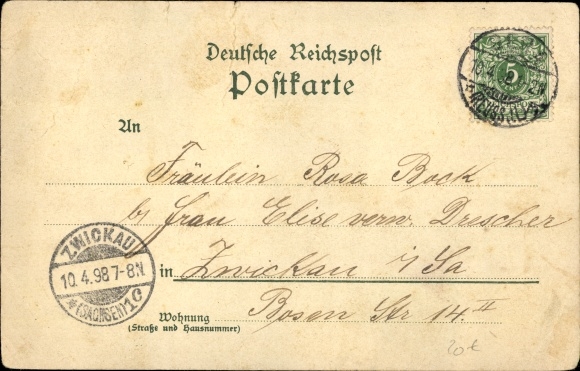 Deutsche Reichspost
Postkarte
5
An
Fräulein Rosa Bock
b/ Frau Elise verw. Drescher
ZWICKAU
10.4.98 7-8N.
*(SACHSEN)1c
in Zwickau i/Sa
Wohnung
(Straße und Hausnummer)
Bosen Str 14 II